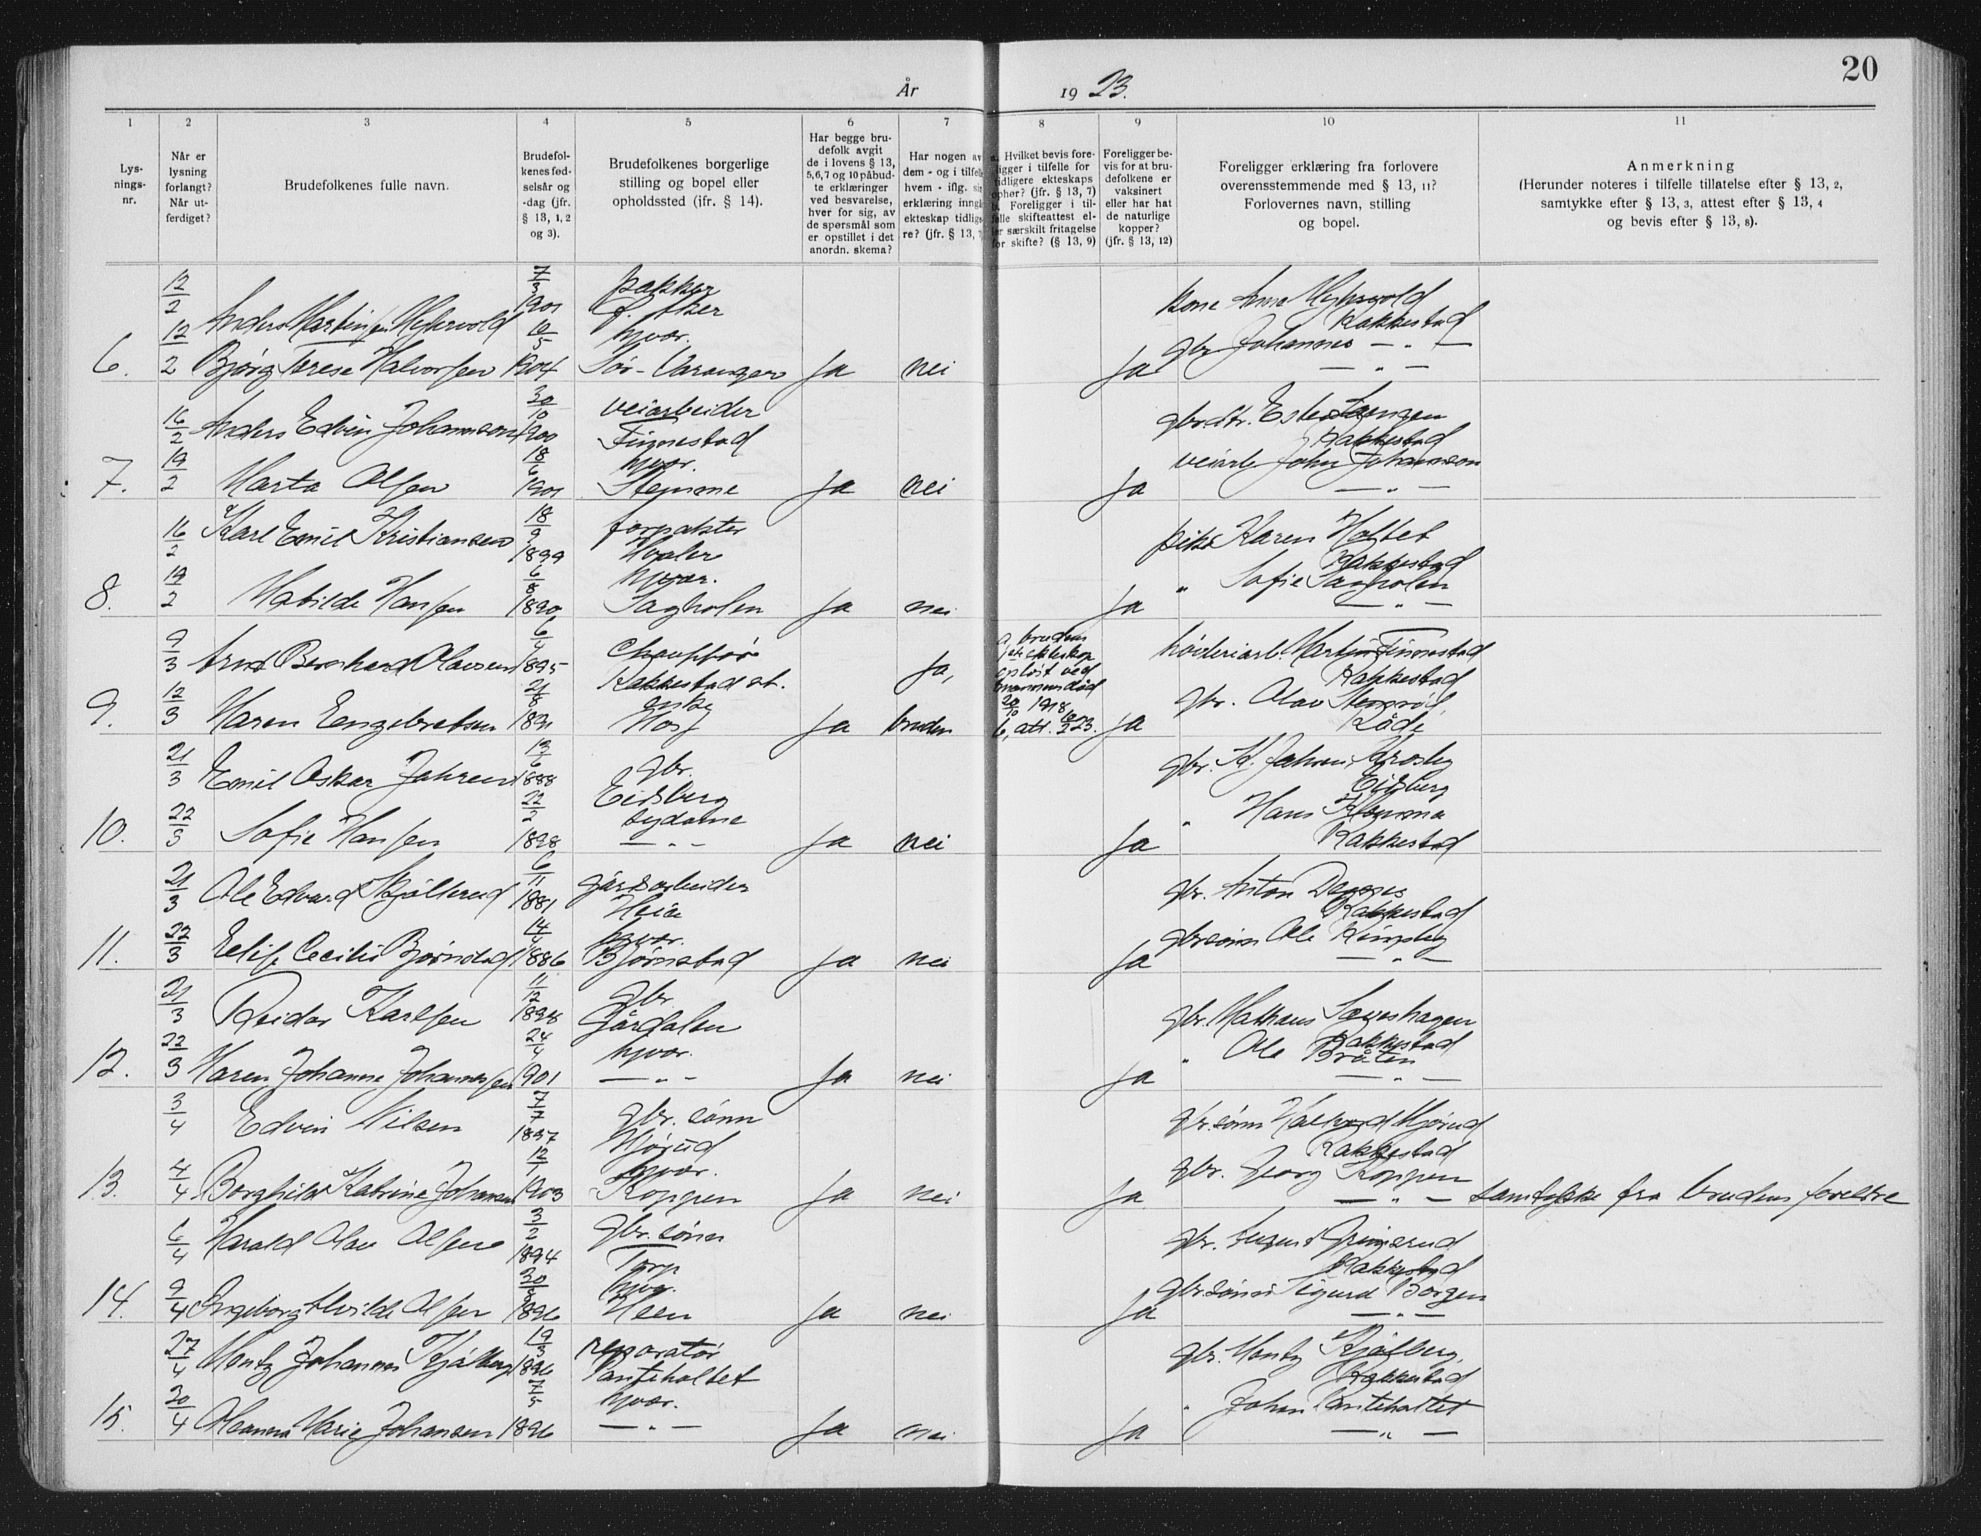 20
År 1923.
1 2 3 4 5 6 7 8 9 10 11
Lys-
nings-
nr.
Når er
lysning
forlangt?
Når ut-
ferdiget?
Brudefolkenes fulle navn.
Brudefol-
kenes fød-
selsår og
-dag (jfr.
§ 13, 1, 2
og 3).
Brudefolkenes borgerlige
stilling og bopel eller
opholdssted (jfr. § 14).
Har begge bru-
defolk avgit
de i lovens § 13,
5,6,7 og 10 påbud-
te erklæringer
ved besvarelse,
hver for sig, av
de spørsmål som
er opstillet i det
anordn. skema?
Har nogen av
dem - og i tilfelle
hvem - iflg. si
erklæring inngå
ekteskap tidlige
re? (jfr. § 13, 7
Hvilket bevis fore-
ligger i tilfelle for
tidligere ekteskaps
ophør? (jfr. § 13, 7)
Foreligger i til-
felle skifteattest el-
ler særskilt fritagelse
for skifte? (§ 13, 9)
Foreligger be-
vis for at bru-
defolkene er
vaksinert
eller har hat
de naturlige
kopper?
(jfr. § 13, 12)
Foreligger erklæring fra forlovere
overensstemmende med § 13, 11?
Forlovernes navn, stilling
og bopel.
Anmerkning
(Herunder noteres i tilfelle tillatelse efter § 13, 2,
samtykke efter § 13, 3, attest efter § 13, 4
og bevis efter § 13, 8).
12/2 7/3 1901 pakker kone Anna
12 Anders Martinsen 10/5 hjvær. Rakkestad
6. 2 Bjørg Terese Halvorsen 1904 Sør-Varanger Ja nei Ja gbr Johannes — " —
— " —
16/2 Anders Edvin Johannson 30/10 1900 veiarbeider Finnestad gbr.dtr. Ester
Rakkestad
7. 19/2 Marta Olsen 18/6 1901 hjvær. Stemme Ja nei Ja veiarb John Johannson
— " —
16/2 Karl Emil Kristiansen 18/9 1899 forpakter Hvaler pike Karen Holtet
Rakkestad
8. 19/2 Matilde Hansen 6/8 1890 hjvær. Sagholen Ja nei Ja " Sofie Sagholen
— " —
9/3 Arnt Bernhard Olavsen 6/4 1895 Chauffør Rakkestad st. Ja, a, brudens
1ste ekteskap
opløst ved
mannens død
20/10 1918,
Martin Finnestad
Rakkestad
9. 12/3 Maren Engebretsen 21/8 1891 enke Ja bruden b, att. Ja gbr. Olav
Råde
21/3 Emil Oskar Jahren 13/6 1888 gbr. Eidsberg gbr. Jahren,
Eidsberg
10. 22/3 Sofie Hansen 22/2 1898 sydame — " — Ja nei Ja " Hans
Rakkestad
21/3 Ole Edvard Skjøllerud 6/11 1881 gårdsarbeider Heia gbr. Anton
Rakkestad
11. 22/3 Cecilie Bjørnstad 14/4 1886 hjvær. Bjørnstad Ja nei Ja gbrsønn Ole
— " —
21/3 Reidar Karlsen 11/12 1898 gbr. Gårdalen gbr. Mathæus
Rakkestad
12. 22/3 Maren Johanne Johannessen 24/4 1901 hjvær. — " — Ja nei Ja " Ole Bråten
— " —
3/4 Edvin Nilsen 7/7 1897 gbr. sønn Mjørud gbr.sønn Halvard Mjørud
Rakkestad
13. 4/4 Borghild Katrine Johansen 12/1 1903 hjvær. Koppen Ja nei Ja gbr. Georg Koppen
— " — samtykke fra brudens foreldre
6/4 Harald Olav Olsen 3/2 1894 gbr. sønn Torp gbr. Grimsrud
Rakkestad
14. 9/4 Ingeborg Alvilde Olsen 1896 hjvær. Heen Ja nei Ja gbrsønn Sigurd Borgen
— " —
27/4 Mentz Johannes Kjølberg 19/3 1896 reparatør Tanteholtet gbr. Mentz Kjølberg,
Rakkestad
15. 20/4 Marie Johansen 7/5 1896 hjvær. — " — Ja nei Ja " Johan Tanteholtet
— " —